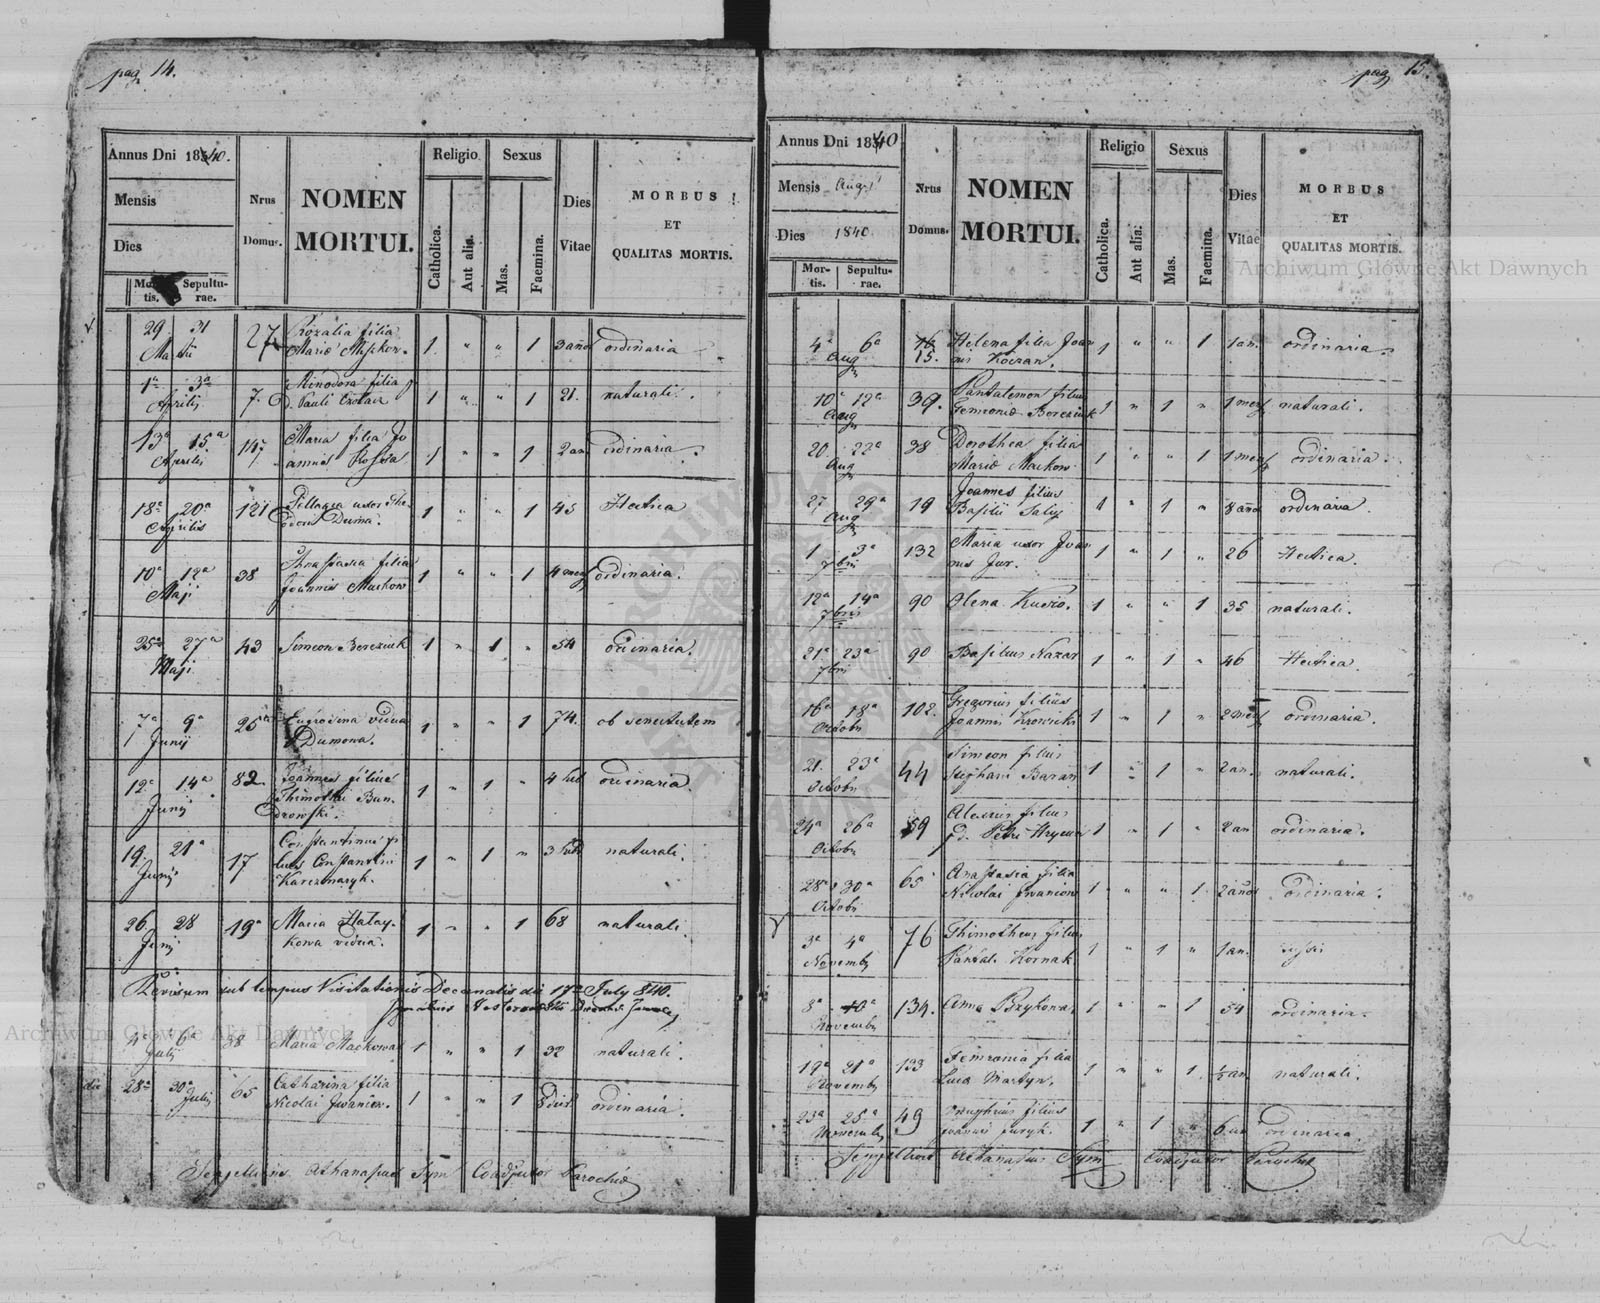 pag. 14.
Annus Dni 1840.
Mensis
Dies
Mortis. Sepulturae.
Nrus Domus.
NOMEN
MORTUI.
Religio
Catholica. Aut alia.
Sexus
Mas. Faemina.
Dies
Vitae
MORBUS
ET
QUALITAS MORTIS.
29 31 27 Rozalia filia 1 " " 1 3 ordinaria
Martii Mariæ
1a 3a 7. filia 1 " " 1 21. naturali.
Aprilis Pauli
13a 15a 147 Maria filia Jo 1 " " 1 2 an ordinaria
Aprilis annis
18a 20a 121 uxor The 1 " " 1 45 Hectica
Aprilis odori Duma.
10a 12a 38 Anastasia filia 1 " " 1 4 mens ordinaria.
Maji Joannis Maćkow
25a 27a 43 Simeon Bereziuk 1 " 1 " 54 ordinaria.
Maji
7a 9a 25 vidua 1 " " 1 74. ob senectutem
Junij Dumowa.
12a 14a 82. Joannes filius 1 " 1 " 4 ordinaria.
Junij Thimothei Ban-
drowski.
19 21a 17 Constantinus fi 1 " 1 " 3 naturali.
Junij lius Constantini
Karczmaryk.
26 28 19a Maria Hatay- 1 " " 1 68 naturali.
Junij kowa vidua.
Revisum sub tempus Visitationis Decanalis die 17a July 840.
4a 6a 38 Maria Mackowa 1 " " 1 32 naturali.
Julij
28a 30a 65 Catharina filia 1 " " 1 8 dier ordinaria.
Julij Nicolai Iwaniow.
Athanasius Sym Coadjutor Parochiæ
pag 15.
Annus Dni 1840
Mensis Augti
Dies 1840.
Mortis. Sepulturae.
Nrus
Domus.
NOMEN
MORTUI.
Religio
Catholica. Aut alia.
Sexus
Mas. Faemina.
Dies
Vitae
MORBUS
ET
QUALITAS MORTIS.
4a 6a 16 Helena filia Joan 1 " " 1 1 an. ordinaria.
Aug 15. nis Koczan.
10a 12a 39. Pantalemon filius 1 " 1 " 1 mens naturali.
Aug Bereziuk
20 22a 38 Dorothea filia 1 " " 1 1 mens ordinaria.
Aug Mariæ Mackow
27 29a 19 Joannes filius 1 " 1 " 8 ordinaria.
Aug Basilii
1 3a 132 Maria uxor Joan 1 " 1 " 26 Hectica.
7bris nis Jur.
12a 14a 90 Olena 1 " " 1 35 naturali.
7bris
21a 23a 90 Basilius Nazar 1 " 1 " 46 Hectica.
7bris
16a 18a 102. Gregorius filius 1 " 1 " 2 mens ordinaria.
Octobr Joannis
21. 23a 44 Simeon filius 1 " 1 " 2 an. naturali.
Octobr Stephani Baran
24a 26a 59 Alexius filius 1 " 1 " 2 an ordinaria.
Octobr Petri
28a 30a 65 Anastasia filia 1 " " 1 2 ordinaria.
Octobr Nikolai Iwaniow
3a 4a 76 Thimotheus filius 1 " 1 " 1 an. tussi
Novemb Pantal. Kornak
8a 10a 134. Anna 1 " " 1 54 ordinaria.
Novemb
19a 21a 133 Femronia filia 1 " " 1. 1/2 an naturali.
Novemb Lucæ Martyn.
23a 25a 49 Onuphrius filius 1 " 1 " 6 an ordinaria.
Novemb Joannis
Athanasius Sym Coadjutor Parochiæ
Archiwum Główne Akt Dawnych
Archiwum Główne Akt Dawnych